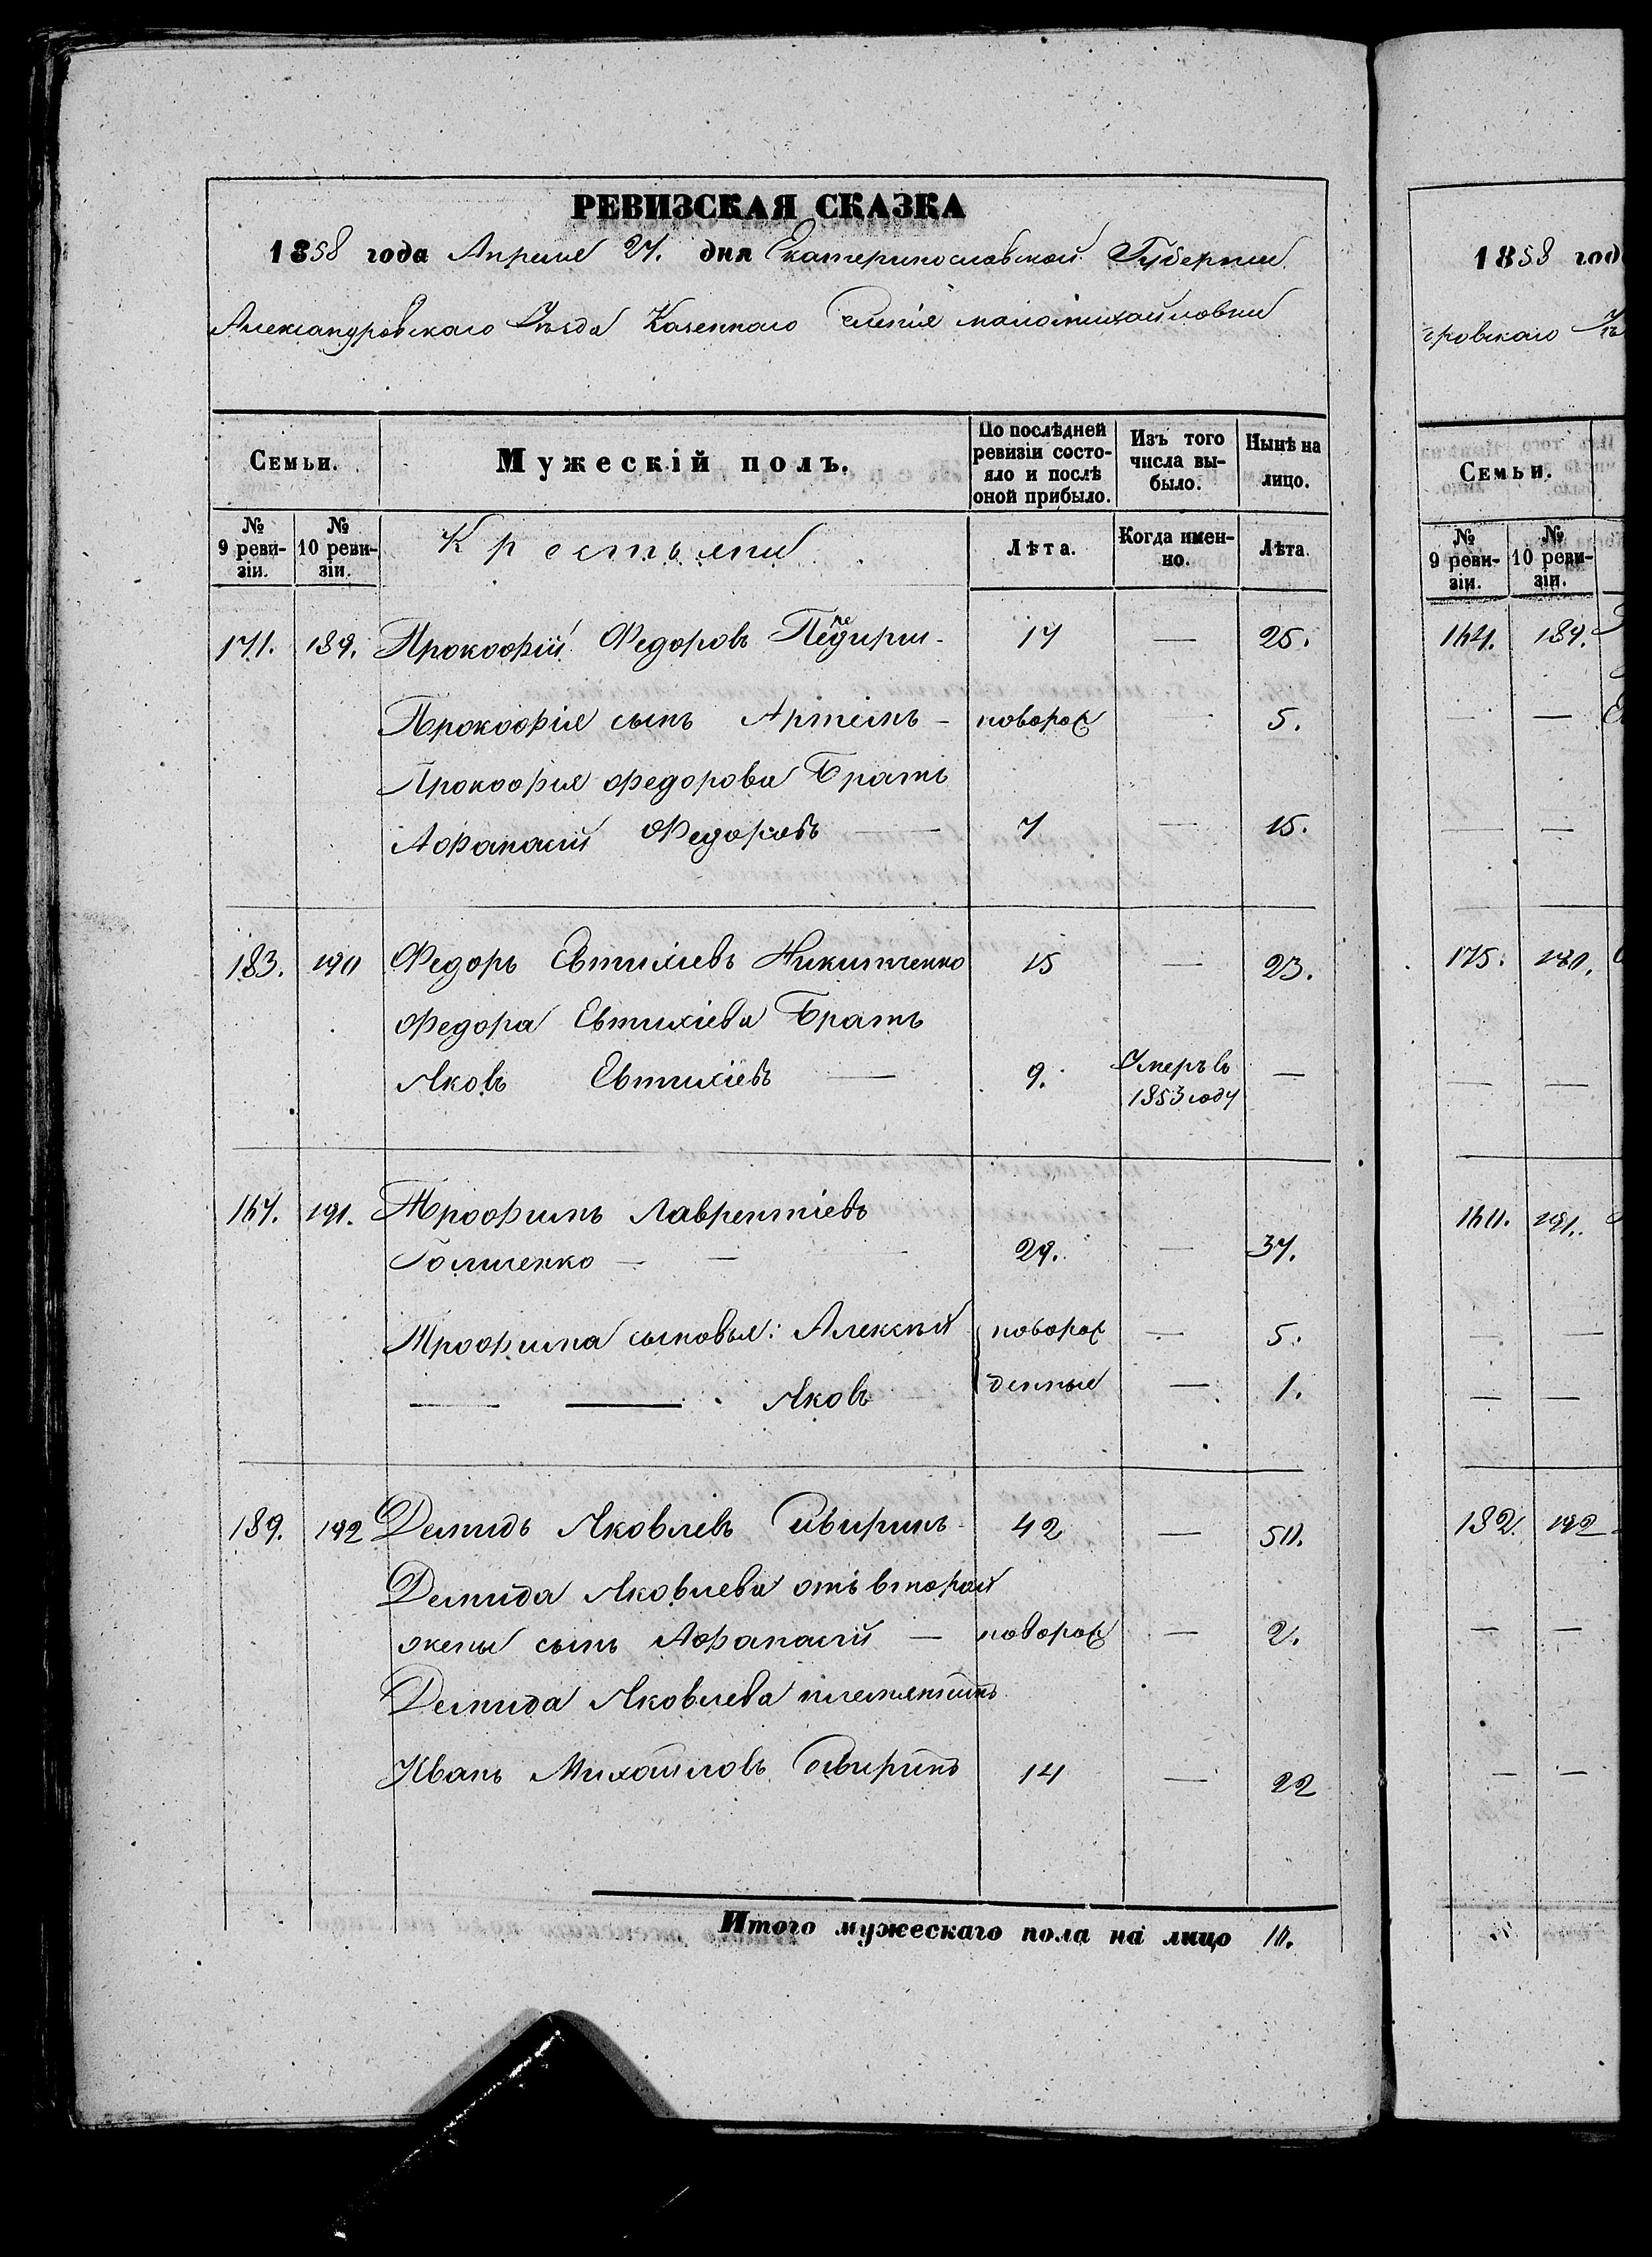 РЕВИЗСКАЯ СКАЗКА
1858 года Апреля 27. дня Екатеринославской Губернии
Александровскаго Уѣзда Казеннаго селенія маломихайловки
Семьи.
Мужескій полъ.
По послѣдней ревизіи состояло и послѣ оной прибыло.
Изъ того числа выбыло.
Нынѣ на лицо.
№ 9 ревизіи.
№ 10 ревизіи.
Крестьяни
Лѣта.
Когда именно.
Лѣта
171. 189. Прокофій Федоровъ 17 — 25.
Прокофія сынъ Артемъ — новорож 5.
Прокофия Федорова Братъ
Афанасій Федоровъ — 7 — 15.
183. 190 Федоръ Евтихіевъ Никитченко 15 — 23.
Федора Евтихіева Братъ
Яковъ Евтихіевъ — 9. Умеръ въ 1853 году —
167. 191. Трофимъ Лаврентіевъ
— — — 29. — 37.
Трофима сыновья: Алексѣй новорож — 5.
— — Яковъ денные — 1.
189. 192 Демидъ Яковлевъ Свиринъ 42 — 50.
Демида Яковлева отъ второй
жены сынъ Афанасій — новорож — 2.
Демида Яковлева племянникъ
Иванъ Михайловъ Свиринъ 14 — 22
Итого мужескаго пола на лицо 10.
1858 год
дровскаго
Семьи.
№ 9 ревизіи.
№ 10 ревизіи.
164. 189.
— —
— —
175. 190.
— —
160. 191.
— —
— —
182. 192
— —
— —